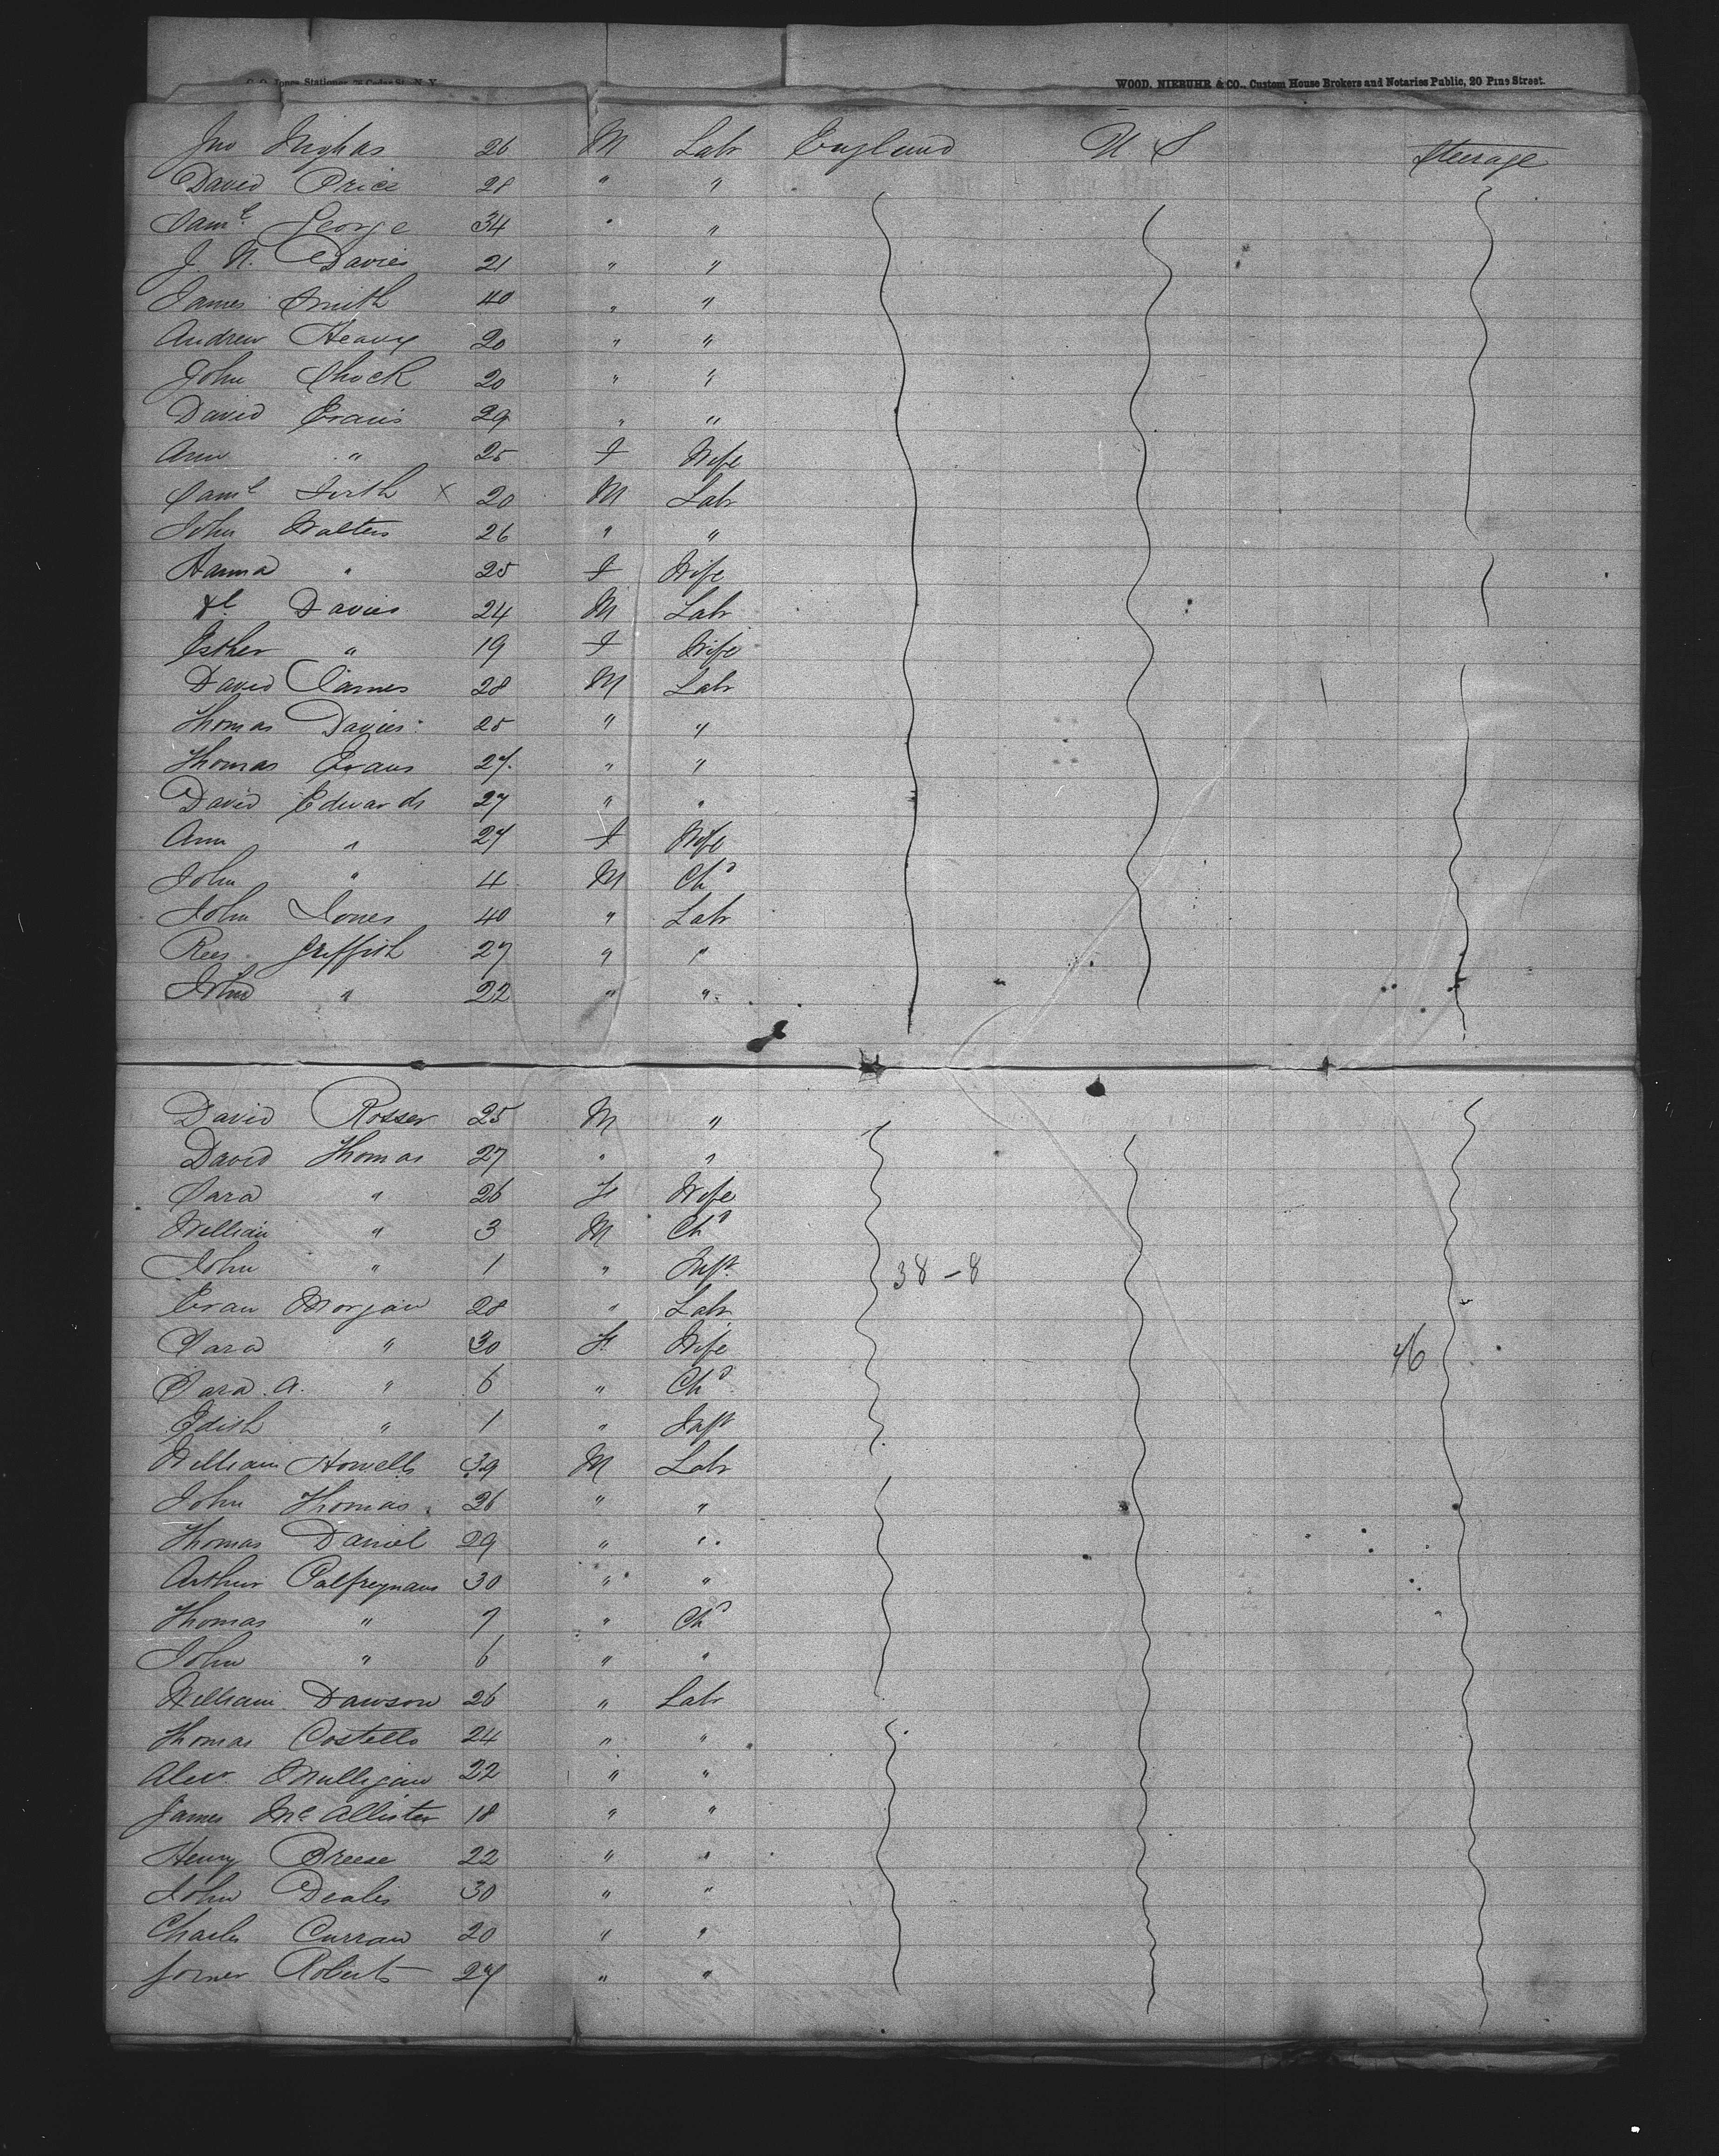 C. O. Jones Stationer, 76 Cedar St., N. Y.
WOOD, NIEBUHR & CO., Custom House Brokers and Notaries Public, 20 Pine Street.
Jno 26 M Labr England U S Steerage
David Price 28 " "
Saml George 34 " "
J. N. Davies 21 " "
James Smith 40 " "
Andrew Heavy 20 " "
John Shock 20 " "
David Evans 29 " "
Ann " 25 F Wife
Saml Firth X 20 M Labr
John Walters 26 " "
Hanna " 25 F Wife
Davies 24 M Labr
Esther " 19 F Wife
David James 28 M Labr
Thomas Davies 25 " "
Thomas Evans 27 " "
David Edwards 27 " "
Ann " 27 F Wife
John " 4 M Chd
John Jones 40 " Labr
Rees Griffith 27 " "
John " 22 " "
David Rosser 25 M "
David Thomas 27 " "
Sara " 26 F Wife
William " 3 M Chd
John " 1 " Inft 38-8
Evan Morgan 28 " Labr
Sara " 30 F Wife 46
Sara A. " 6 " Chd
Edith " 1 " Inft
William Howells 39 M Labr
John Thomas 26 " "
Thomas Daniel 29 " "
Arthur Palfreyman 30 " "
Thomas " 7 " Chd
John " 6 " "
William Dawson 26 " Labr
Thomas Costello 24 " "
Alexr Mulligan 22 " "
James McAllister 18 " "
Henry Breese 22 " "
John 30 " "
Charles Curran 20 " "
James Roberts 27 " "